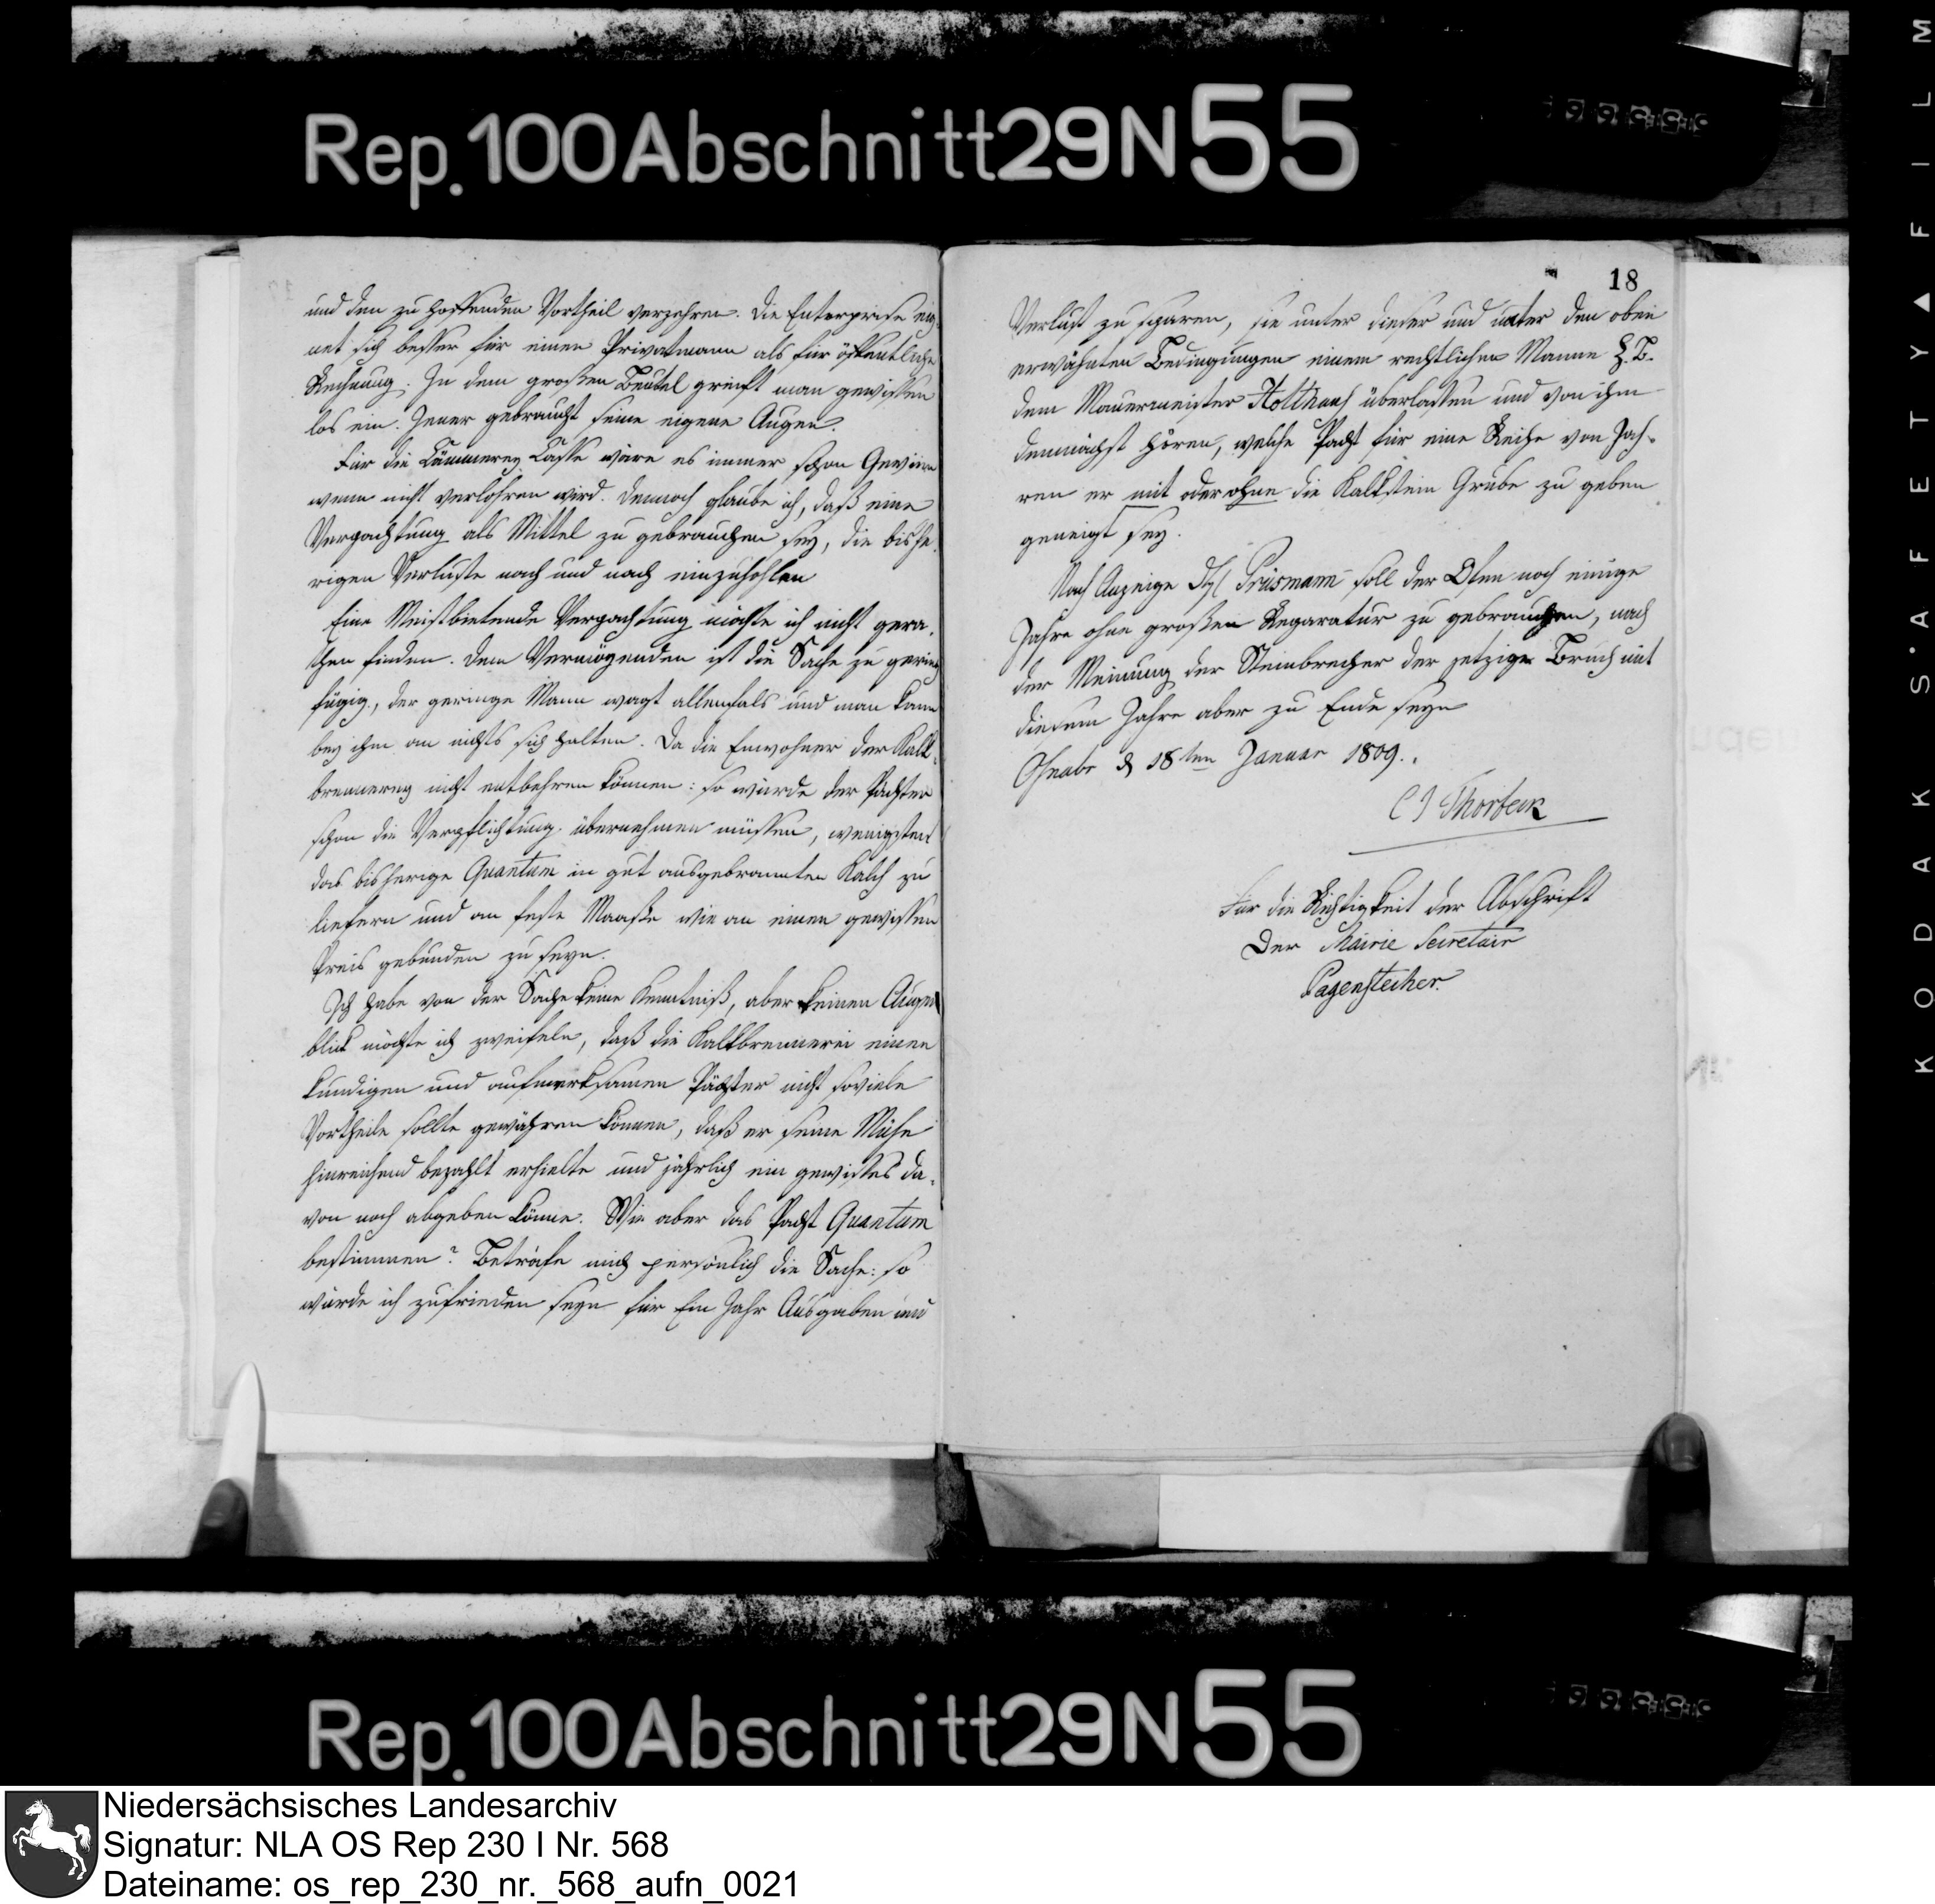 Rep. 100 Abschnitt 29 N 55
und den zu hoffenden Vortheil verzehren. Die Enterprise eig¬
net sich besser für einen Privatmann als für öffentliche
Rechnung. In dem großen Beutel greift man gewissen
los ein. Jener gebraucht seine eigene Augen.
Für die Cämmerey Casse wäre es immer schon Gewinn
wenn nicht verlohren wird. Dennoch glaube ich, daß eine
Verpachtung als Mittel zu gebrauchen sey, die bishe¬
rigen Verluste nach und nach einzuhohlen
Eine Meistbietende Verpachtung möchte ich nicht gera¬
then finden. Dem Vermögenden ist die Sache zu gering
fügig, der geringe Mann wagt allenfals und man kann
bey ihm an nichts sich halten. Da die Einwohner der Kalk¬
brennerey nicht entbehren können: so würde der Pächter
schon die Verpflichtung übernehmen müssen, wenigstens
das bisherige Quantum in gut ausgebrannten Kalch zu
liefern und an feste Maaße wie an einen gewissen
Preis gebunden zu seyn.
Ich habe von der Sache keine Kenntniß, aber keinen Augen
blick möchte ich zweifeln, daß die Kalkbrennerei einen
kundigen und aufmerksamen Pächter nicht soviele
Vortheile sollte gewähren können, daß er seine Mühe
hinreichend bezahlt erhielte und jährlich ein gewisses da¬
von noch abgeben könne. Wie aber das Pacht Quantum
bestimmen? Beträfe mich persönlich die Sache: so
würde ich zufrieden seyn für Ein Jahr Ausgaben und
18
Verlust zu sparen, sie unter dieser und unter den oben
erwähnten Bedingungen einem rechtlichen Manne Z. B.
dem Mauermeister Holthaus überlassen und von ihm
demnächst hören, welche Pacht für eine Reihe von Jah¬
ren er mit oder ohne die Kalkstein Grube zu geben
geneigt sey.
Nach Anzeige Prüsmann soll der Ofen noch einige
Jahre ohne großen Reparatur zu gebrauchen, nach
der Meinung der Steinbrecher der jetzige Bruch mit
diesem Jahre aber zu Ende seyn
Osnabr d 18ten Januar 1809.
C J Thorbeck
Für die Richtigkeit der Abschrift
Der Mairie Secretair
Pagenstecher.
KODAK S'AFETY▲FILM
Rep. 100 Abschnitt 29 N 55
Niedersächsisches Landesarchiv
Signatur: NLA OS Rep 230 I Nr. 568
Dateiname: os_rep_230_nr._568_aufn_0021